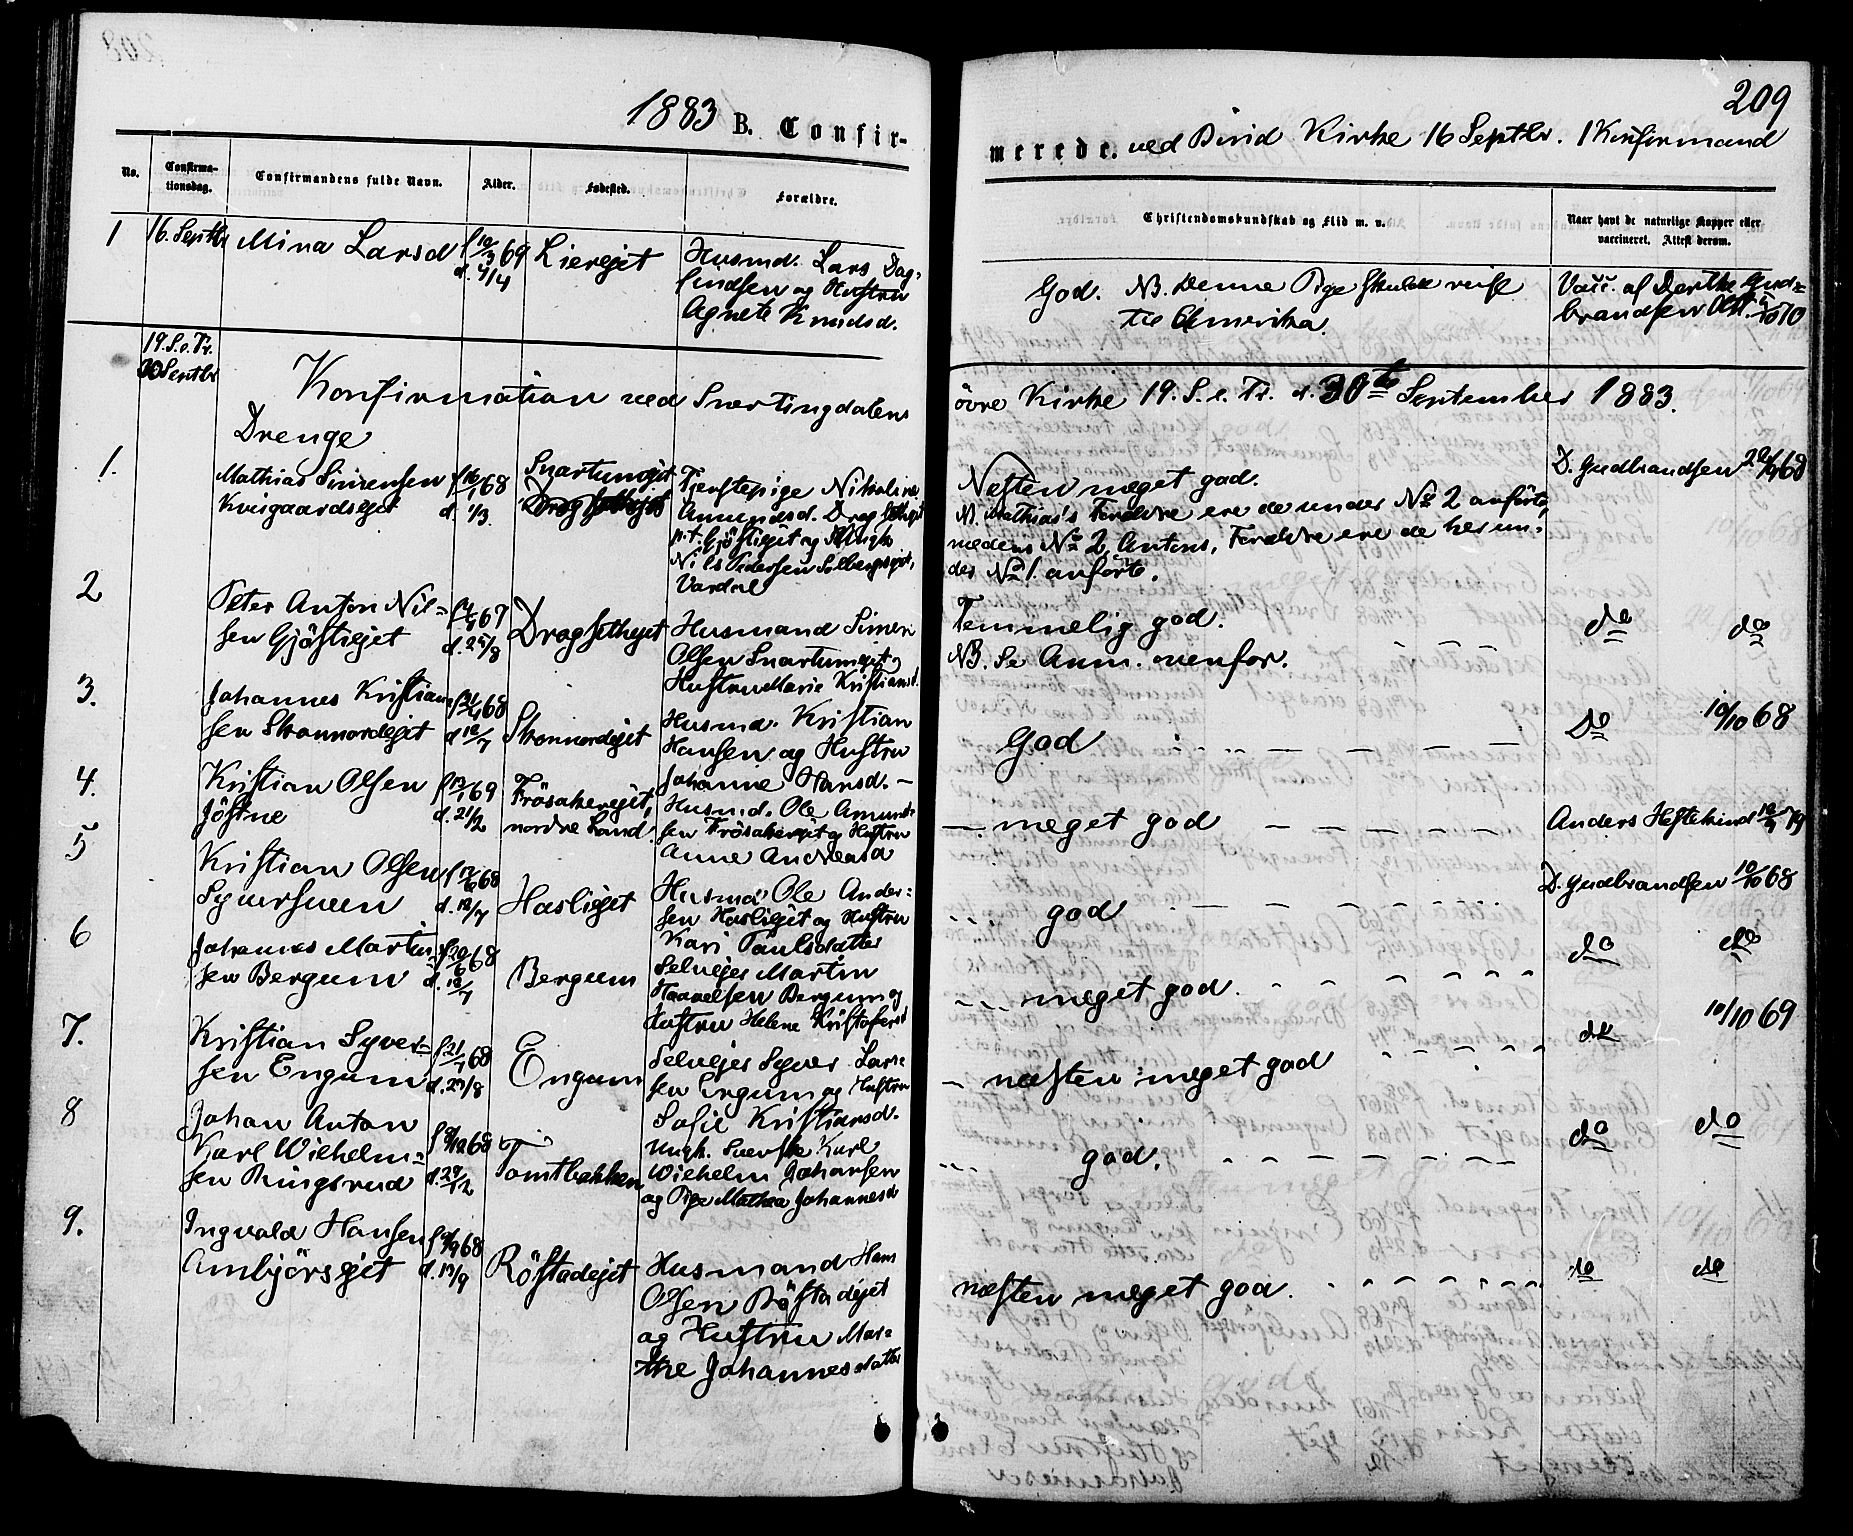 209
1883 B. Confirmerede. ved Birid Kirke 16 Septbr. 1 Konfirmand
No.
Confirma-
tionsdag.
Confirmandens fulde Navn.
Alder.
Fødested.
Forældre.
Christendomskundskab og Flid m. v.
Naar havt de naturlige Kopper eller
vaccineret. Attest derom.
1 16. Septbr Mina Larsd f 10/3 69 Lierejet Husmd. Lars Dag-
d. 4/4
findsen og Hustru
Agnete Knudsd.
God. NB. Denne Pige skulde reise
til Amerika.
Vacc. af Dorthe Gud-
brandsen Att.
19. S. e. Tr.
30 Septbr
Konfirmation ved Snertingdalens
øvre Kirke 19. S. e. Tr. d. 30te September 1883.
Drenge
1. Mathias Simensen f 16/1 68 Snartumejet
Kviigaardsejet d. 1/3.
Tjenstepige Nikoline
Amundsd. Dragsethejet
p.t. Gjøstiejet og Ungk
Nils Pedersen Solbergsejet,
Vardal
Næsten meget god.
N. Mathias's Forældre ere de under No 2 anførte,
medens No 2, Antons, Forældre ere de her un-
der No 1 anførte.
D. Gudbrandsen 29/9 68
2 Peter Anton Nil- 67 Dragsethejet
sen Gjøstiejet d. 25/8
Husmand Simen
Olsen Snartumejet og
Hustru Marie Kristiansd.
Temmelig god.
NB. Se Anm. ovenfor.
do do
3. Johannes Kristian- 68
sen Skonnordejet d. 12/7 Skonnordejet
Husmd. Kristian
Hansen og Hustru
Johanne Hansd. —
God
Do 10/10 68
4. Kristian Olsen f 13/1 69 Frösakerejet,
Jöstne d. 21/2 nordre Land.
Husmd. Ole Amund-
sen Frösakerejet og Hustru
Anne Andreasd
— meget god
Anders Hestekind
5 Kristian Olsen 68
d. 12/7 Hasliejet
Husmd Ole Ander-
sen Hasliejet og Hustru
Kari Paulsdatter
god
D. Gudbrandsen 10/10 68
6 Johannes Martin- f 20/6 68
sen Bergum d. 12/7 Bergum
Selvejer Martin
Haavelsen Bergum og
Hustru Helene Kristofersd
meget god.
do do
7. Kristian Syver- f 21/7 68
sen Engum d. 23/8 Engum
Selvejer Syver Lar-
sen Engum og Hustru
Sofie Kristiansd.
— næsten meget god
do 10/10 69
8 Johan Anton
Karl Wilhelm- 68
sen Ringsrud Tomtbakken
Ungk. Svenske Karl
Wilhelm Johansen
og Pige Mathea Johannesd
god.
do do
9. Ingvald Hansen 68
Ambjörsejet d. 13/9 Röstadejet
Husmand Hans
Olsen Röstadejet
og Hustru Mar-
the Johannesdatter
næsten meget god.
do do